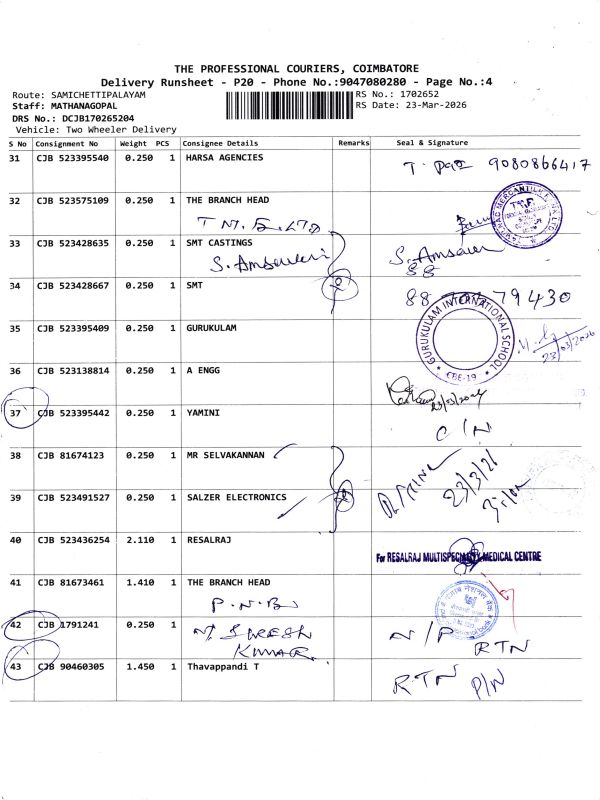 THE PROFESSIONAL COURIERS, COIMBATORE
Delivery Runsheet - P20 - Phone No.:9047080280 - Page No.:4
Route: SAMICHETTIPALAYAM
RS No.: 1702652
Staff: MATHANAGOPAL
RS Date: 23-Mar-2026
DRS No.: DCJB170265204
Vehicle: Two Wheeler Delivery
S No Consignment No Weight PCS Consignee Details Remarks Seal & Signature
31 CJB 523395540 0.250 1 HARSA AGENCIES
9080866417
32 CJB 523575109 0.250 1 THE BRANCH HEAD
33 CJB 523428635 0.250 1 SMT CASTINGS
88
34 CJB 523428667 0.250 1 SMT
79430
35 CJB 523395409 0.250 1 GURUKULAM
GURUKULAM INTERNATIONAL SCHOOL
CBE-19
23/03/2026
36 CJB 523138814 0.250 1 A ENGG
37 CJB 523395442 0.250 1 YAMINI
C/N
38 CJB 81674123 0.250 1 MR SELVAKANNAN
23/3/26
39 CJB 523491527 0.250 1 SALZER ELECTRONICS
40 CJB 523436254 2.110 1 RESALRAJ
For RESALRAJ MULTISPECIALTY MEDICAL CENTRE
41 CJB 81673461 1.410 1 THE BRANCH HEAD
P.N.B
42 CJB 1791241 0.250 1 SURESH
KUMAR
N/P RTN
43 CJB 90460305 1.450 1 Thavappandi T
RTN P/N